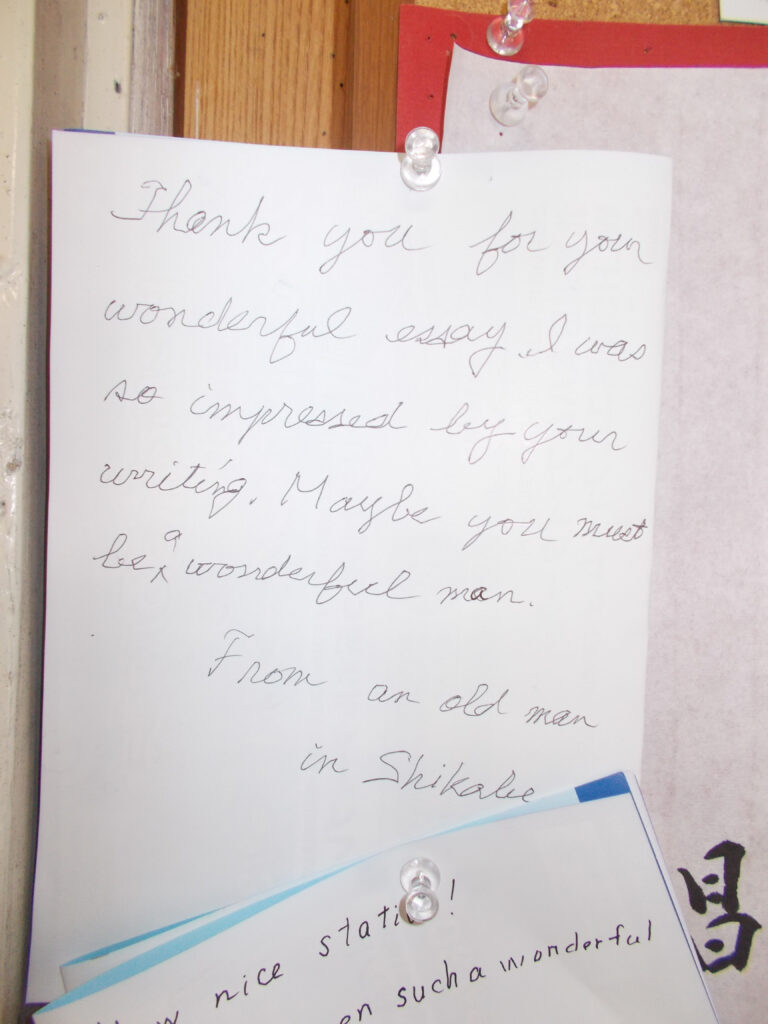 Thank you for your
wonderful essay. I was
so impressed by your
writing. Maybe you must
be a wonderful man.
From an old man
in Shikabe
nice !
such a wonderful
昌